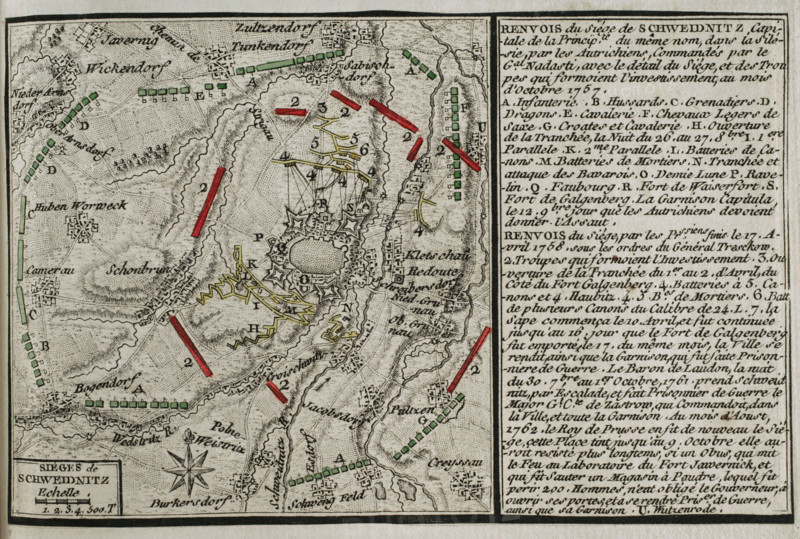 Javernig
Chemin de
Zultzendorf
Tunkendorf
Sabisch-
dorf
Wickendorf
Nieder Arns
dorf
Arnsdorf
Huben Worweck
Camerau
Schonbrun
Bogendorf
Wedstritz R.
Polne
Weistritz
Burkersdorf
Schweidnitz
Jacobsdorf
Schweng Feld
Creyssau
Pültzen
Kletschau
Redoute
Schreibersdorf
Nied. Gru
nau
Ob. Gru
nau
A
A
A
A
A
B
B
C
C
D
D
E
F
H
I
K
M
O
P
R
S
U
2
2
2
2
2
2
2
2
3
4
4
4
4
5
5
6
SIEGES de
SCHWEIDNITZ
Echelle
1. 2. 3. 4. 500. T
RENVOIS du Siége de SCHWEIDNITZ, Capi-
tale de la Princip.té du même nom, dans la Sile-
sie, par les Autrichiens, Commandés par le
G.al Nadasti, avec le détail du Siége, et des Trou
pes qui formoient l'investissement, au mois
d'Octobre 1757.
A. Infanterie. B. Hussards. C. Grenadiers. D.
Dragons. E. Cavalerie. F. Chevaux Legers de
Saxe. G. Croates et Cavalerie. H. Ouverture
de la Tranchée, la Nuit du 26. au 27. 8bre. I. 1ere
Parallele. K. 2me Parallele. L. Batteries de Ca-
nons. M. Batteries de Mortiers. N. Tranchée et
attaque des Bavarois. O. Demie Lune P. Rave-
lin. Q. Faubourg. R. Fort de Waiserfort. S.
Fort de Galgenberg. La Garnison Capitula,
le 12. 9bre jour que les Autrichiens devoient
donner l'Assaut.
RENVOIS du Siége, par les Prussiens finis le 17. A-
vril 1758. sous les ordres du Général Tresckow.
2. Troupes qui formoient l'Investissement. 3. Ou-
verture de la Tranchée du 1er au 2. d'Avril, du
Côté du Fort Galgenberg. 4. Batteries à 5. Ca-
nons et 4. Haubitz. 4. 3. B.es de Mortiers. 6. Batt
de plusieurs Canons du Calibre de 24. L. 7. la
Sape commença le 10 Avril, et fut continuée
jusqu'au 16. jour que le Fort de Galgenberg
fut emporté, le 17. du même mois, la Ville se
rendit, ainsi que la Garnison, qui fut faite Prison-
niere de Guerre. Le Baron de Laudon, la nuit
du 30. 7bre au 1er Octobre, 1761. prend Schweid
nitz, par Escalade, et fait Prisonnier de Guerre le
Major G.l C.te de Zastrow, qui Commandoit, dans
la Ville, et toute la Garnison. Au mois d'Aoust,
1762. le Roy de Prusse en fit de nouveau le Sié-
ge, cette Place tint jusqu'au 9. Octobre elle au-
roit resisté plus longtems, si un Obus, qui mit
le Feu au Laboratoire du Fort Jawernick, et
qui fit sauter un Magasin à Poudre, lequel fit
perir 200. Hommes, n'eut obligé le Gouverneur, à
ouvrir ses portes, et à se rendre Pris.er de Guerre,
ainsi que sa Garnison. U. Wutzenrode.